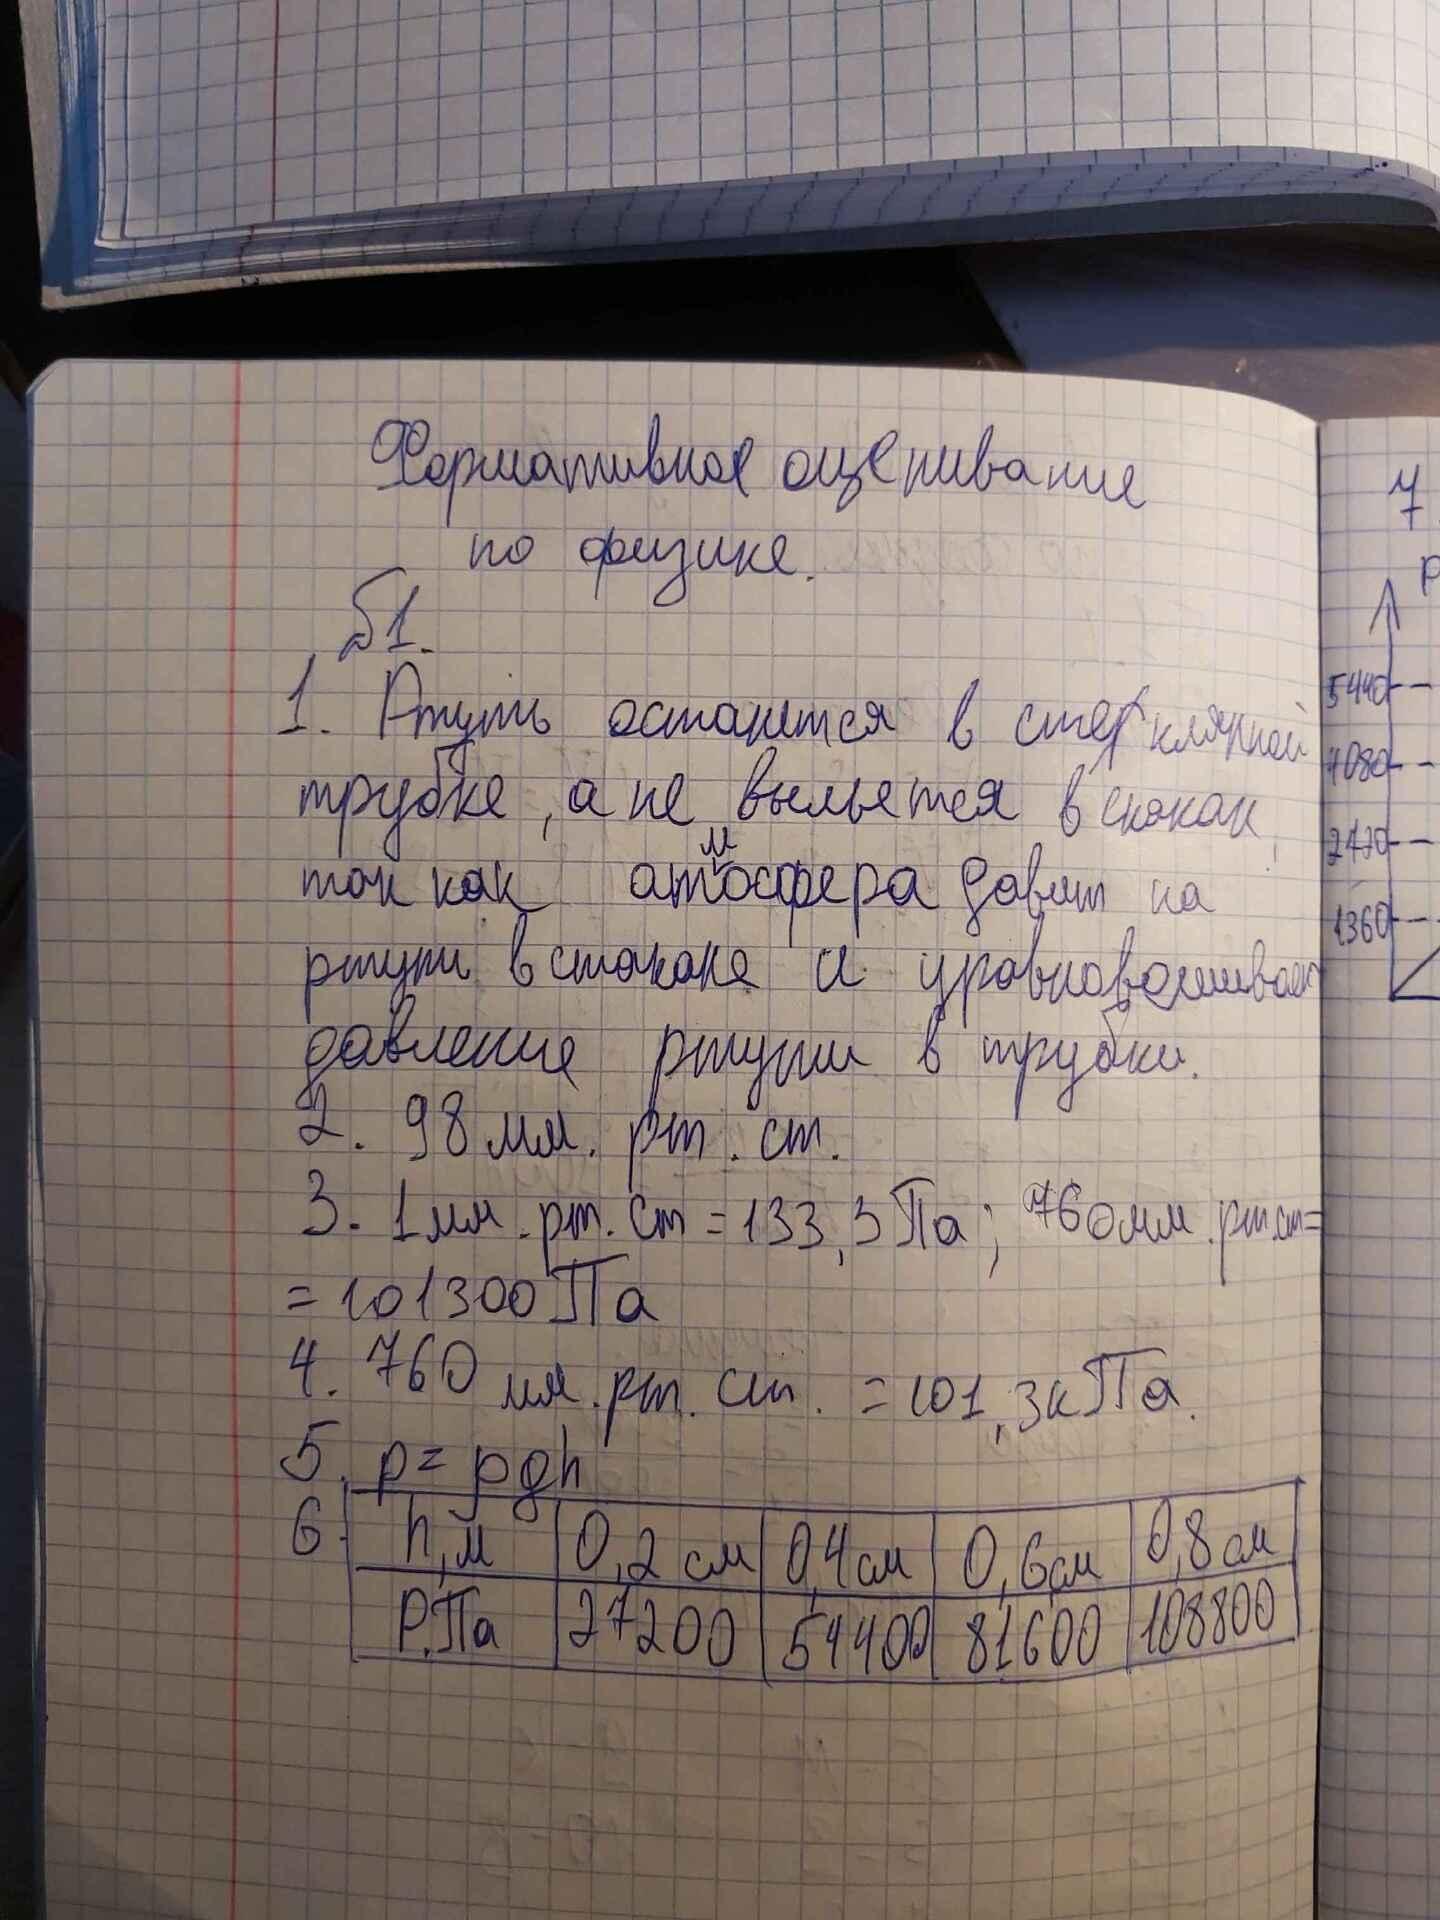 Формативное оценивание
по физике.
§1.
1. Ртуть останется в стеклянной
трубке, а не выльется в стакан,
так как атмосфера давит на
ртуть в стакане и уравновешивает
давление ртути в трубки.
2. 98 мм. рт. ст.
3. 1 мм. рт. ст = 133,3 Па; 760 мм. рт.ст=
= 101300 Па
4. 760 мм. рт. ст. = 101,3 кПа.
5. p = ρgh
6. h, м 0,2 см 0,4 см 0,6 см 0,8 см
P. Па 27200 54400 81600 108800
7
P
5440
4080
1360